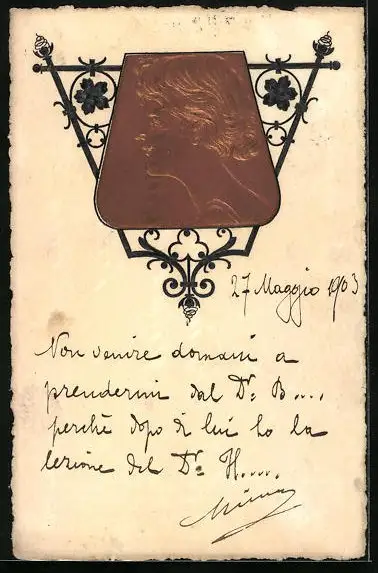 27 Maggio 1903
Non venire domani a
prendermi dal Dr. B....
perchè dopo di lui ho la
lezione del Dr. H.....